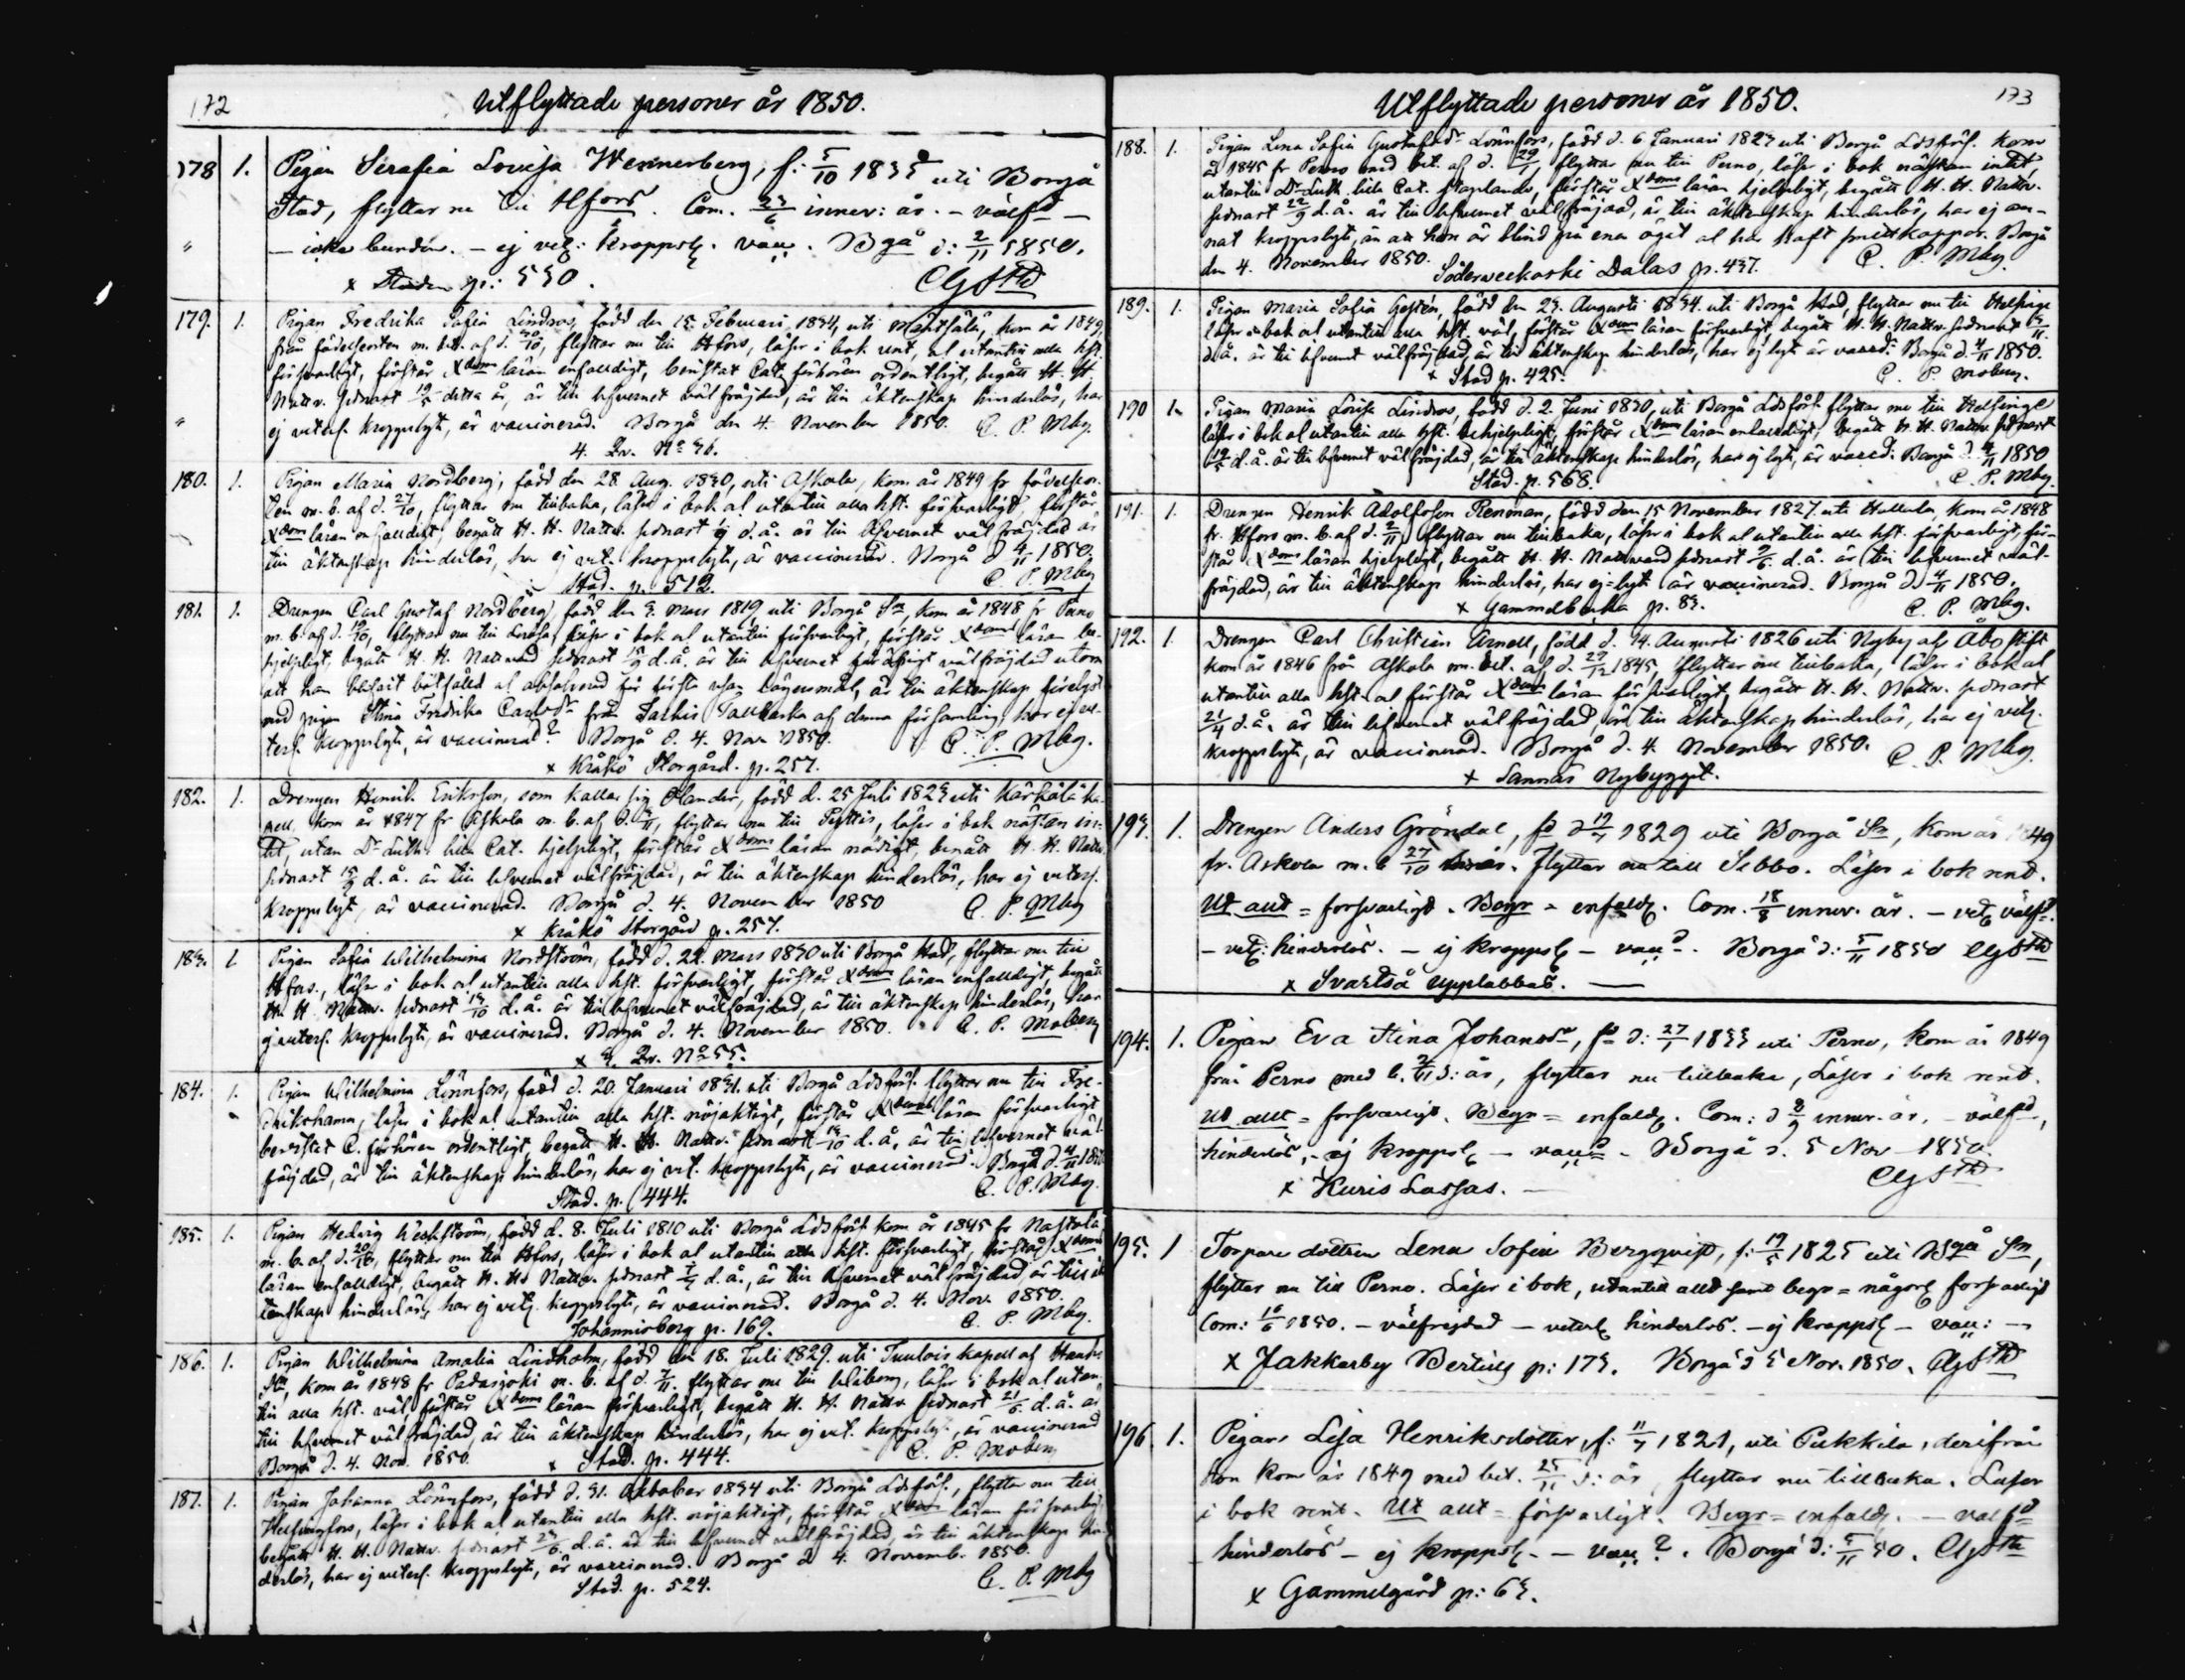 172
Utflyttade personer år 1850.
178 1. Pigan Serafia Lovisa Wennerberg, f: 5/10 1833 uti Borgå
Stad, flyttar nu till Hfors. Com. 23/6 innev: år. - välfd -
- icke bunden. - ej vet: kroppsl. vacc. Bgå d: 2/11 1850.
x Staden p: 530.
179. 1. Pigan Fredrika Sofia Lindros, född den 15 Februari 1834, uti Mäntsälä, kom år 1849
från födelseorten m. bet. af d. /10, flyttar nu till Hfors, läser i bok rent, al utantill alla hst.
försvarligt, förstår Xdoms läran enfalldigt, bevistat Cat. förhören ordentligt, begått H. H.
Nattv. sednast detta år, är till lefvernet välfräjdad, är till äktenskap hinderlös, har
ej veterl. kroppslyte, är vaccinerad. Borgå den 4. November 1850. C. P. Mbg.
4. Qv. No 36.
180. 1. Pigan Maria Nordberg, född den 28 Aug. 1830, uti Askola, kom år 1849 fr födelseor-
ten m. b. af d. 27/10, flyttar nu tillbaka, läser i bok al utantill alla hst. försvarligt, förstår
Xdoms läran enfalldigt, begått H. H. Nattv. sednast d. å. är till lefvernet välfräjdad är
till äktenskap hinderlös, har ej vet. kroppslyte, är vaccinerad. Borgå d 4/11 1850.
Stad. p. 512. C. P. Mbg
181. 1. Drengen Carl Gustaf Nordberg, född den 3. Mars 1819, uti Borgå Sn, kom år 1848 fr Perno
m. b. af d. 10, flyttar nu till Lovisa, läser i bok al utantill försvarligt, förstår Xdoms läran be-
hjelpligt, begått H. H. Nattvard sednast d. å. är till lefvernet för öfrigt välfräjdad utom
att han blifvit bötfälld al absolverad för första resan lägersmål, är till äktenskap förelyst
med pigan Stina Fredrika Carlsdr från Tarkis Tallbacka af denna församling, har ej ve-
terl. kroppslyte, är vaccinerad? Borgå d. 4. Nov. 1850. C. P. Mbg.
x Kråkö Storgård. p. 257.
182. 1. Drengen Henrik Eriksson, som kallar sig Olander, född d. 25 Juli 1823 uti Kärkölä ka-
pell, kom år 1847 fr Askola m. b. af d. /11, flyttar nu till Pyttis, läser i bok nästan in-
tet, utan Dr Luth. lilla Cat. hjelpligt, förstår Xdoms läran nödigt, begått H. H. Nattv.
sednast d. å. är till lefvernet välfräjdad, är till äktenskap hinderlös, har ej veterl.
kroppslyte, är vaccinerad. Borgå d. 4. November 1850 C. P. Mbg
x Kråkö Storgård p. 257.
183. 1 Pigan Sofia Wilhelmina Nordström, född d. 22. Mars 1830 uti Borgå Stad, flyttar nu till
Hfors, läser i bok al utantill alla hst. försvarligt, förstår Xdoms läran enfalldigt, begått
H. H. Nattv. sednast /10 d. å. är till lefvernet välfräjdad, är till äktenskap hinderlös, har
ej veterl. kroppslyte, är vaccinerad. Borgå d. 4. November 1850. C. P. Moberg
x 3. Qv. No 55.
184. 1. Pigan Wilhelmina Lönnfors, född d. 20. Januari 1831. uti Borgå Ldsförs. flyttar nu till Fre-
drikshamn, läser i bok al utantill alla hst. nöjaktigt, förstår Xdoms läran försvarligt
bevistat C. förhören ordentligt, begått H. H. Nattv. sednast /10 d. å. är till lefvernet väl-
fräjdad, är till äktenskap hinderlös, har ej vet. kroppslyte, är vaccinerad. Borgå d. 4/11 1850
Stad. p. 444. C. P. Mbg.
185. 1. Pigan Hedvig Weckström, född d. 8. Juli 1810 uti Borgå Ldsförs. kom år 1845 fr Nastola
m. b. af d. 20/10, flyttar nu till Hfors, läser i bok al utantill alla hst. försvarligt, förstår Xdoms
läran enfalldigt, begått H. H. Nattv. sednast d. å., är till lefvernet välfräjdad, är till äk-
tenskap hinderlös, har ej vetl. kroppslyte, är vaccinerad. Borgå d. 4. Nov. 1850.
Johannisberg p. 169. C. P. Mbg.
186. 1. Pigan Wilhelmina Amalia Lindholm, född den 18. Juli 1829. uti Tuulois kapell af Hauho
Sn, kom år 1848 fr Padasjoki m. b. af d. /11. flyttar nu till Wiborg, läser i bok al utan-
till alla hst. väl, förstår Xdoms läran försvarligt, begått H. H. Nattv. sednast 21/6 d. å. är
till lefvernet välfräjdad, är till äktenskap hinderlös, har ej vet. kroppslyte, är vaccinerad
Borgå d. 4. Nov. 1850. x Stad. p. 444. C. P. Moberg
187. 1. Pigan Johanna Lönnfors, född d. 31. Oktober 1834 uti Borgå Ldsförs., flyttar nu till
Helsingfors, läser i bok al utantill alla hst. nöjaktigt, förstår Xdoms läran försvarligt
begått H. H. Nattv. sednast 23/6 d. å. är till lefvernet välfräjdad, är till äktenskap hin-
derlös, har ej veterl. kroppslyte, är vaccinerad. Borgå d 4. Novemb. 1850.
Stad. p. 524. C. P. Mbg
173
Utflyttade personer år 1850.
188. 1. Pigan Lena Sofia Gustafsdr Lönnfors, född d. 6 Januari 1823 uti Borgå Ldsförs. kom
år 1845 fr Perno med bet. af d. 29/, flyttar nu till Perno, läser i bok nästan intet,
utantill Dr Luth. lilla Cat. staplande, förstår Xdoms läran hjelpligt, begått H. H. Nattv.
sednast 22/9 d. å. är till lefvernet välfräjdad, är till äktenskap hinderlös, har ej an-
nat kroppslyte, än att hon är blind på ena ögat al har haft smittkoppor. Borgå
den 4. November 1850. Söderveckoski Dalas p. 437. C. P. Mbg.
189. 1. Pigan Maria Sofia Gestén, född den 23. Augusti 1834. uti Borgå stad, flyttar nu till Helsinge
läser i bok al utantill alla hst. väl, förstår Xdoms läran försvarligt, begått H. H. Nattv. sednast
d. å. är till lefvernet välfräjdad, är till äktenskap hinderlös, har ej lyte är vaccd. Borgå d. 4/11 1850.
x Stad p. 425. C. P. Moberg.
190 1. Pigan Maria Lovisa Lindros, född d. 2. Juni 1830, uti Borgå Ldsförs. flyttar nu till Helsinge
läser i bok al utantill alla hst. behjelpligt, förstår Xdoms läran enfalldigt, begått H. H. Nattv. sednast
d. å. är till lefvernet välfräjdad, är till äktenskap hinderlös, har ej lyte, är vaccd. Borgå d. 4/11 1850
Stad. p. 568. C. P. Mbg.
191. 1. Drengen Henrik Adolfsson Renman, född den 15 November 1827. uti Hollola, kom år 1848
fr. Hfors m. b. af d. 2/11 flyttar nu tillbaka, läser i bok al utantill alla hst. försvarligt, för-
står Xdoms läran hjelpligt, begått H. H. Nattvard sednast d. å. är till lefvernet väl-
fräjdad, är till äktenskap hinderlös, har ej lyte är vaccinerad. Borgå d. 4/11 1850.
x Gammelbacka p. 83. C. P. Mbg.
192. 1. Drengen Carl Christian Arnell, född d. 14. Augusti 1826 uti Nyby af Åbo stift
kom år 1846 från Askola m. bet. af d. 29/12 1845, flyttar nu tillbaka, läser i bok al
utantill alla hst. al förstår Xdoms läran försvarligt, begått H. H. Nattv. sednast
21/4 d. å. är till lefvernet välfräjdad, är till äktenskap hinderlös, har ej vetl.
kroppslyte, är vaccinerad. Borgå d. 4. November 1850. C. P. Mbg.
x Sannäs Nybygget.
193. 1. Drengen Anders Gröndal, fd d 1829 uti Borgå Sn, kom år 1849
fr. Askola m. b 27/10 s. år. flyttar nu till Sibbo. Läser i bok rent.
Ut allt = försvarligt. Begr = enfaldl. Com. 18/8 innev. år. - vetl välfd.
- vetl: hinderlös. - ej kroppsl - vacc?. Borgå d: 5/11 1850
x Svartså Upplabbas.
194. 1. Pigan Eva Stina Johansdr, fd d: 27/1 1833 uti Perno, kom år 1849
från Perno med b. 2/11 s: år, flyttar nu tillbaka, Läser i bok rent.
Ut allt = försvarligt. Begr = enfaldl. Com: d 8/9 innev. år. - välfd -,
hinderlös, - ej kroppsl - vacc? - Borgå d. 5 Nov 1850.
x Kuris Lassas.
195. 1 Torpare dottren Lena Sofia Bergqvist, f: 19/5 1825 uti Bgå Sn,
flyttar nu till Perno. Läser i bok, utantill allt samt begr = någorl försvarligt
Com: 16/6 1850. - välfrejdad - veterl hinderlös. - ej kroppsl - vacc: -
x Jakkarby Bertils p: 173. Borgå d 5 Nov. 1850.
196. 1. Pigan Lisa Henriksdotter, f: 11/7 1821, uti Pukkila, derifrån
hon kom år 1849 med bet. 25/11 s: år, flyttar nu tillbaka. Läser
i bok rent. Ut allt = försvarligt. Begr = enfaldl. - välfd
hinderlös - ej kroppsl. - vacc?. Borgå d: 5/11 50.
x Gammelgård p: 63.